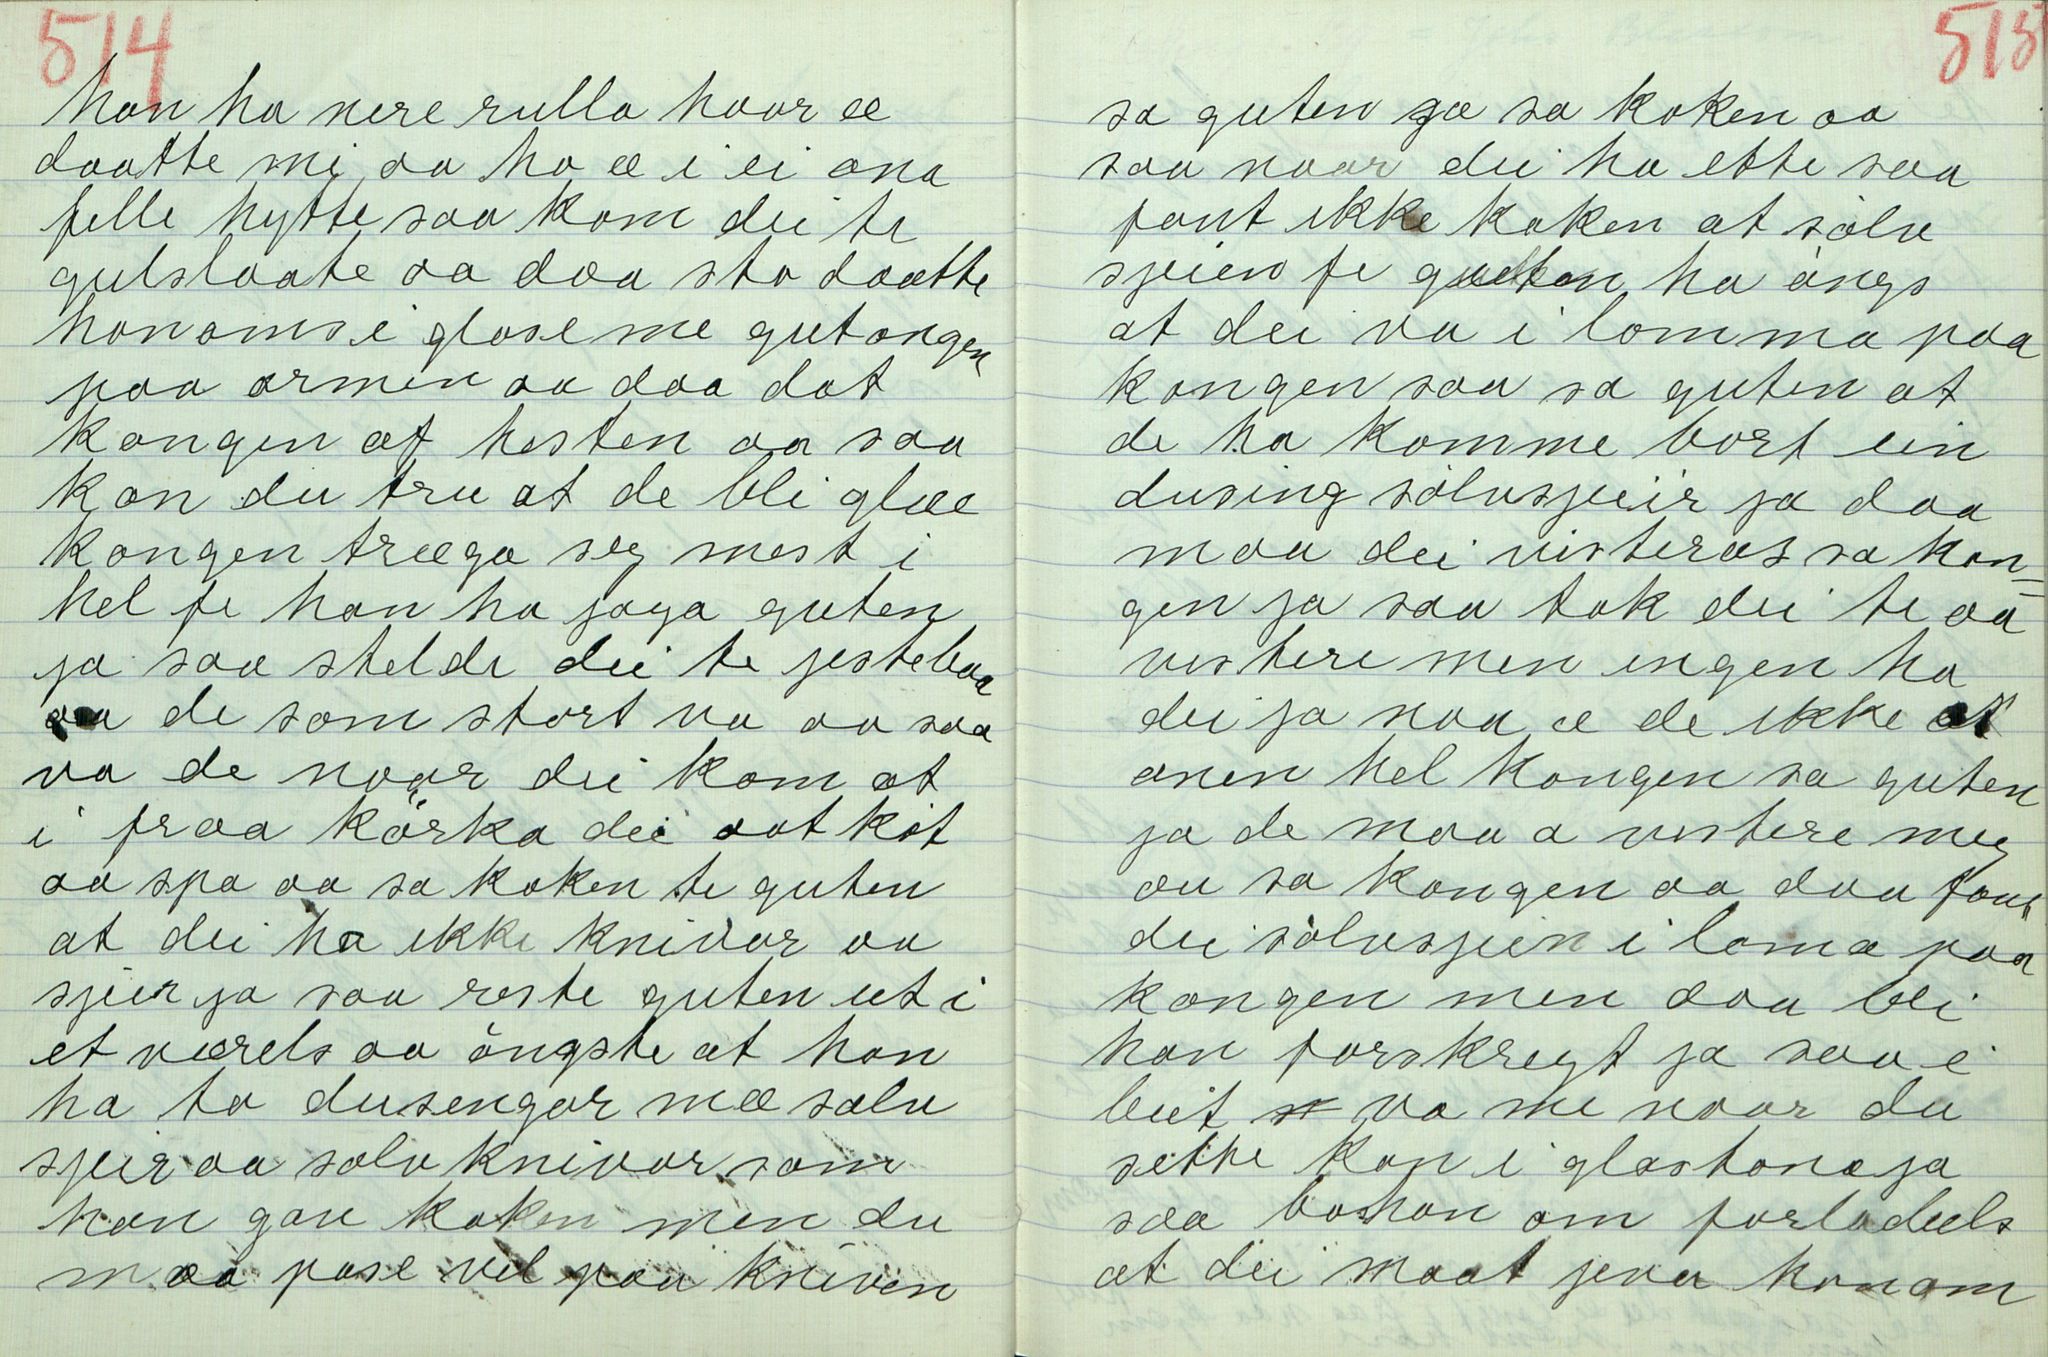 514
han ha nere rulla hoor æ
daatte mi aa ho æ i ei ana
fille hytte saa kom dei te
gulslaate aa daa sto daatte
honoms i glase me gutongen
paa armen aa daa dat
kongen af hesten aa saa
kan du tru at de bli glæe
kongen træga seg mest i
hel fe han ha jaga guten
ja saa stelde dei te jestebaa
aa de som stort va aa saa
va de naar dei kom at
i fraa körka dei aat kjöt
aa spa aa sa koken te guten
at dei ha ikke knivar aa
sjeir ja saa reste guten ut i
et værels aa öngste at han
ha to dusengar mæ sølv
sjeir aa sølv knivar som
han gav koken men du
maa pase vel paa kniven
515
sa guten ja sa koken aa
saa naar dei ha ette saa
fant ikke koken at sölv
sjeien fe guten ha öngs
at dei va i lomma paa
kongen saa sa guten at
de ha komme bort ein
dusing sölvsjeir ja daa
maa dei visteras sa kon=
gen ja saa tok dei te aa
vistere men ingen ha
dei ja naa æ de ikke at
anen hel kongen sa guten
ja de maa a vistere meg
au sa kongen aa daa fant
dei sölvsjeien i loma paa
kongen men daa blei
han forskregt ja saa ei
leit va me naar du
sette kon i glastonæ ja
saa ba han om forladels
at dei maat jeva honom